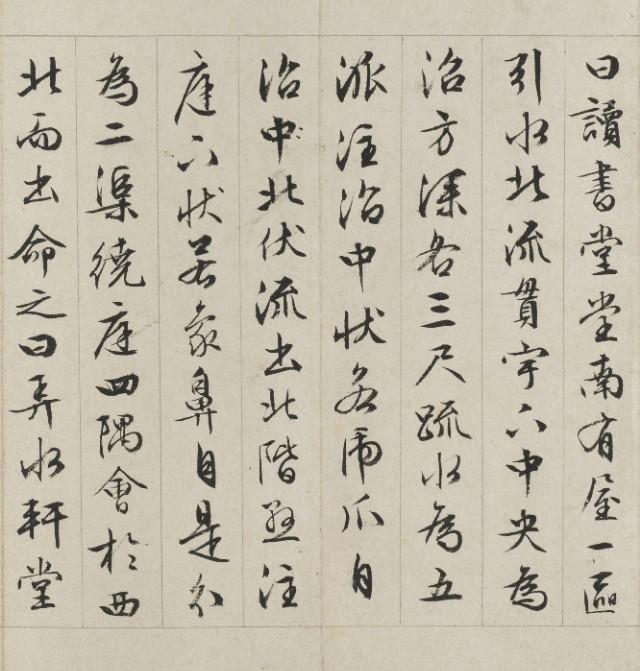 曰讀書堂堂南有屋一區
引水北流貫宇下中央為
沼方深各三尺疏水為五
派注沼中狀若虎爪自
沼中北伏流出北階懸注
庭下狀若象鼻自是分
為二渠繞庭四隅會於西
北而出命之曰弄水軒堂